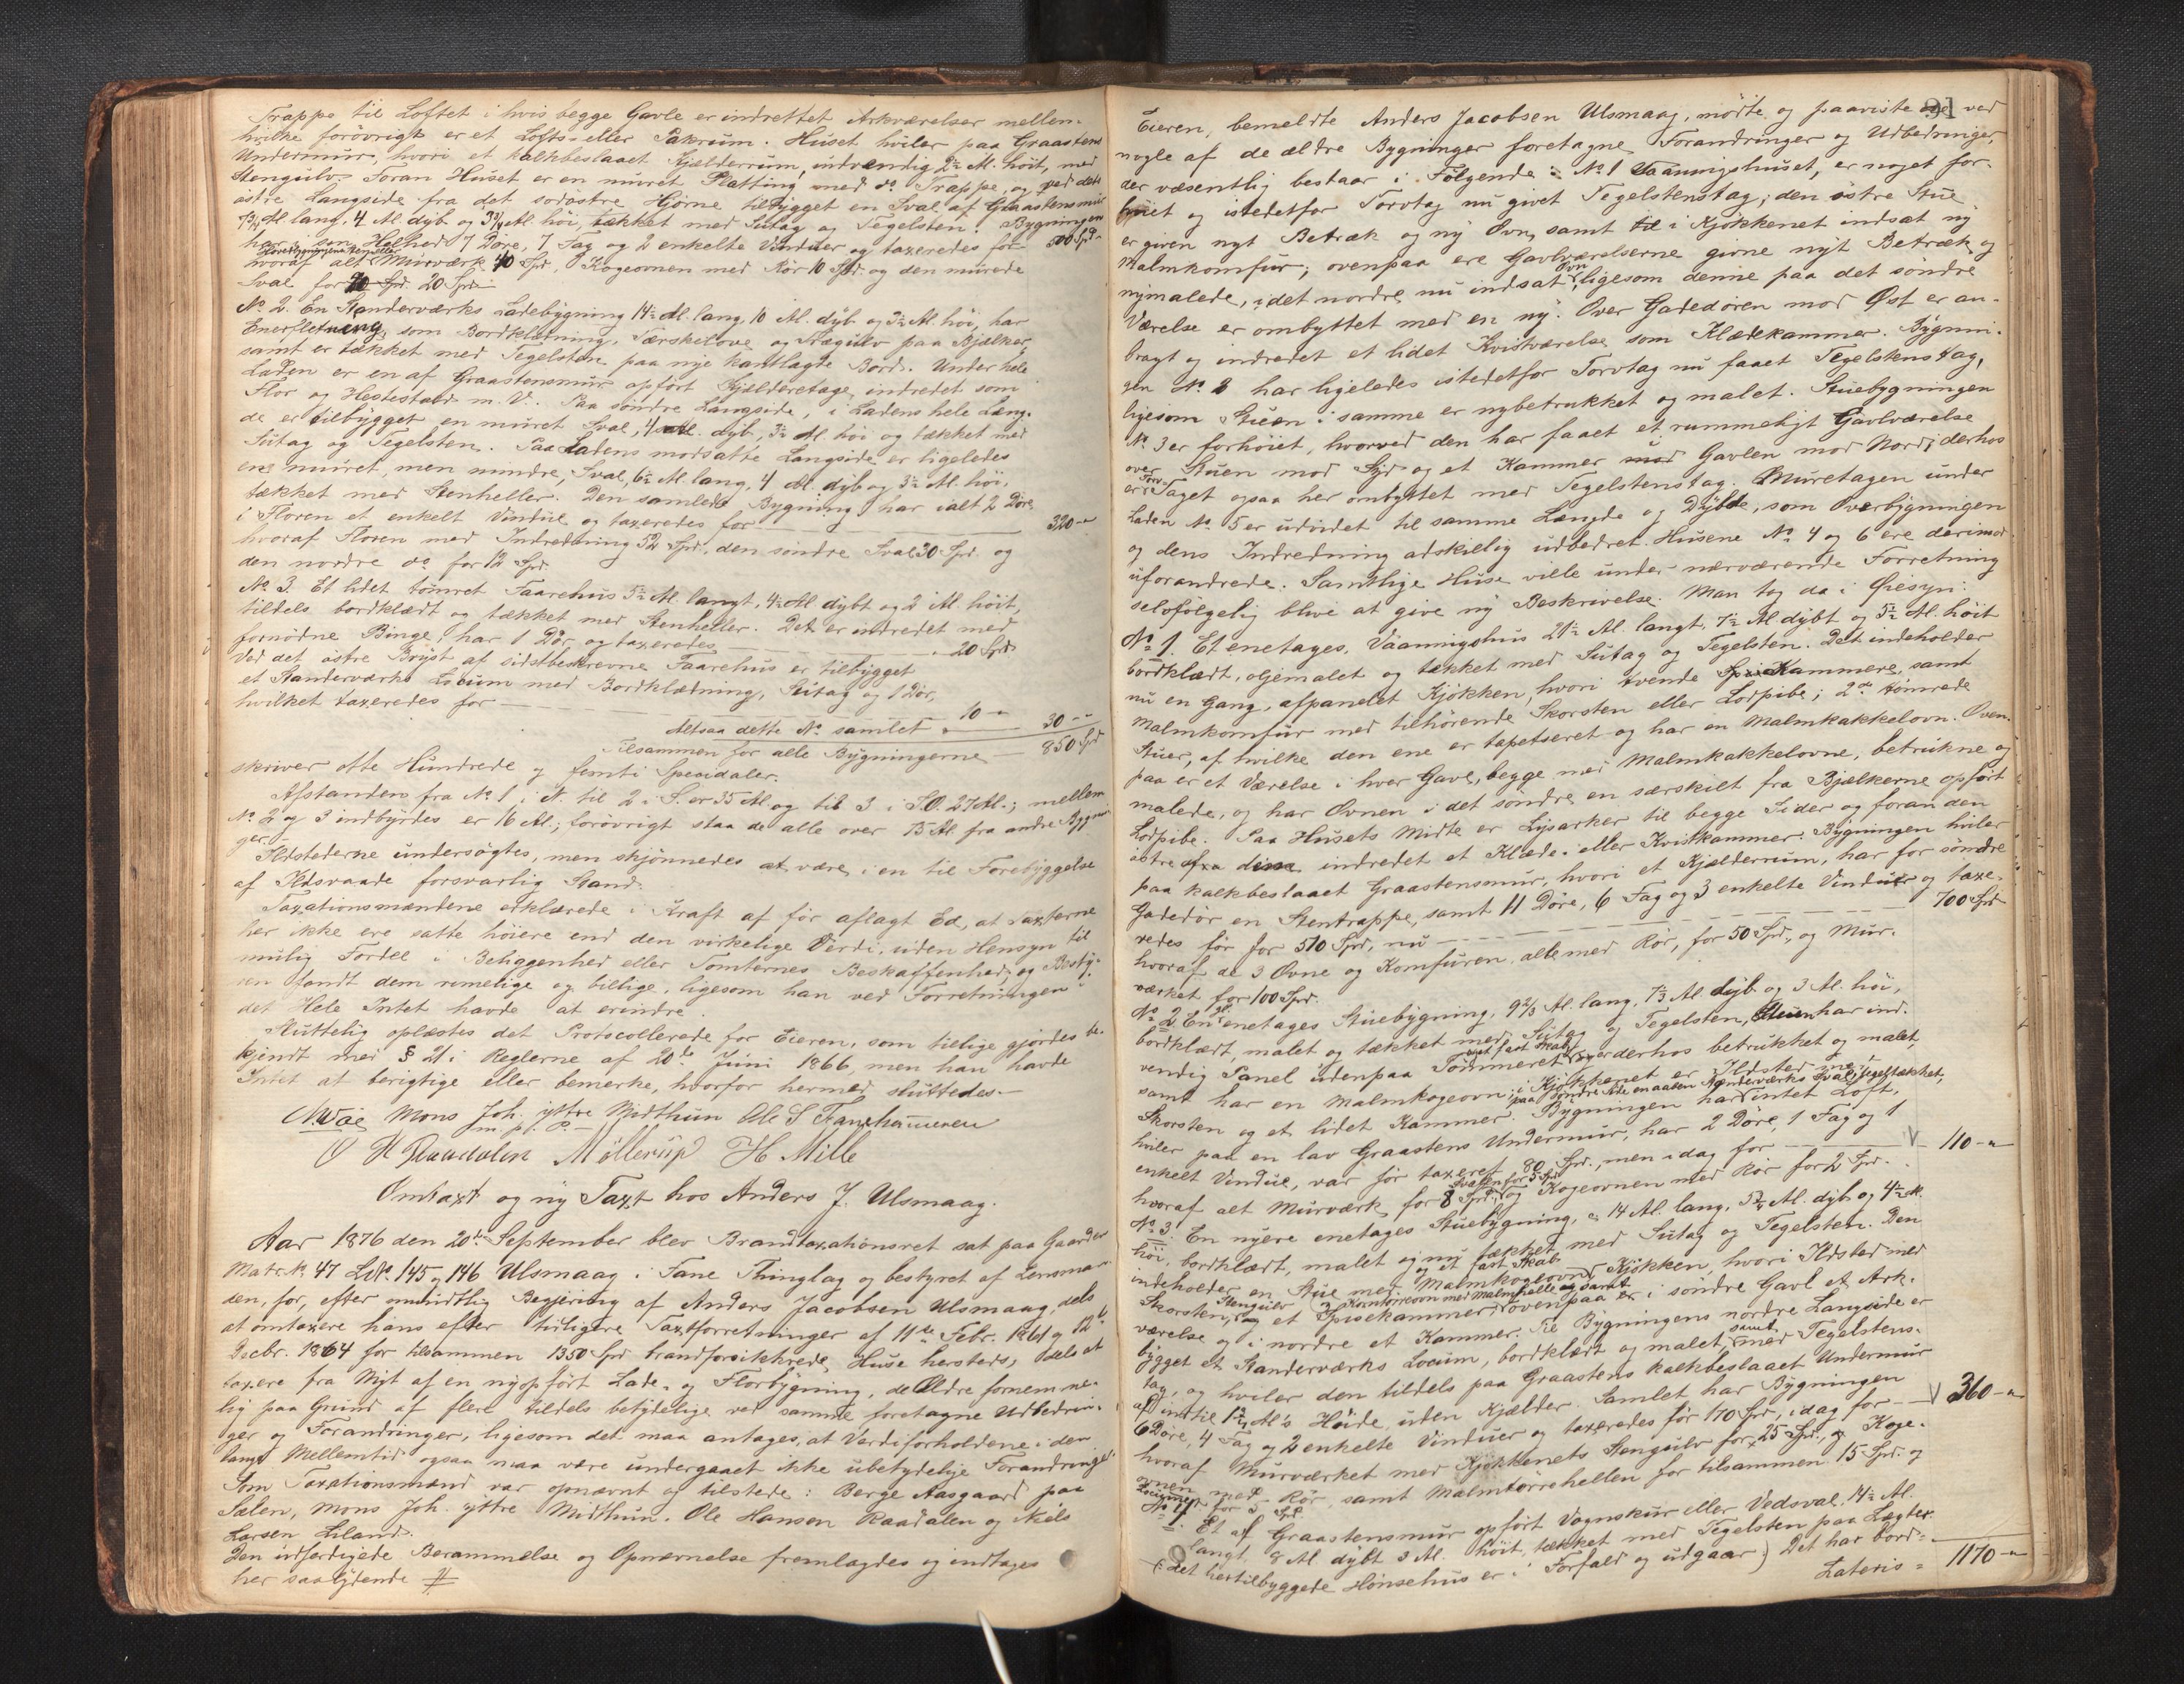 Trappe til Loftet i hvis begge Gavle er indrettet Arkværelser mellem
hvilke forövrigt er et Lofts- eller Pakrum. Huset hviler paa Graastens
Undermur, hvori et kalkbeslaaet Kjælderrum, indvendig 2½ Al. höit, med
Stengulv. Foran Huset er en muret Platting med do Trappe, og ved dets
östre Langside fra det sydöstre Hjörne tilbygget en Sval af Graastensmur
7¾ Al. lang, 4 Al. dyb og 3¾ Al. höi, tækket med Sutag og Tegelsten. Bygningen
har i sin Helhed 7 Döre, 7 Fag og 2 enkelte Vinduer og taxeredes for 500 Spd.
hvoraf alt Hovedbygningens Murværk 40 Spd, Kogeovnen med Rör 10 Spd. og den murede
Sval for 20 Spd.
No 2. En Standerværks Ladebygning 14½ Al. lang, 10 Al. dyb og 3½ Al. höi, har
Enerfletning, som Bordklædning, Tærskelove og Trægulv paa Bjælker,
samt er tækket med Tegelsten paa nye kantlagte Bord. Under hele
Laden er en af Graastensmur opfört Kjælderetage, indredet som
Flor og Hestestald m. V. Paa söndre Langside, i Ladens hele Læng-
de er tilbygget en muret Sval, 4 Al. dyb, 3½ Al. höi og tækket med
Sutag og Tegelsten. Paa Ladens modsatte Langside er ligeledes
en muret, men mindre, Sval, 6½ Al. lang, 4 Al. dyb og 3½ Al. höi,
tækket med Stenheller. Den samlede Bygning har ialt 2 Döre
i Floren et enkelt Vindue og taxeredes for 320 - "
hvoraf Floren med Indredning 52 Spd, den söndre Sval 30 Spd. og
den nordre do for 12 Spd.
No 3. Et lidet tömret Faarehus 5½ Al. langt, 4½ Al dybt og 2 Al. höit,
tildels bordklædt og tækket med Stenheller. Det er indredet med
fornödne Binge, har 1 Dör og taxeredes 20 Spd.
Ved det östre Bryst af sidstbeskrevne Faarehus er tilbygget
et Standerværks Locum med Bordklædning, Sutag og 1 Dör,
hvilket taxeredes for 10 - "
Altsaa dette No samlet 30 - "
Tilsammen for alle Bygningerne 850 Spd
skriver otte Hundrede og femti Speciedaler.
Afstanden fra No 1 i N. til 2 i S. er 35 Al. og til 3 i S.O. 27 Al.; mellem
No 2 og 3 indbyrdes er 16 Al.; forövrigt staa de alle over 15 Al. fra andre Bygnin
ger.
Ildstederne undersögtes, men skjönnedes at være i en til Forebyggelse
af Ildsvaade forsvarlig Stand.
Taxationsmændene erklærede i Kraft af för aflagt Ed, at Taxterne
her ikke ere satte höiere end den virkelige Værdi, uden Hensyn til
mulig Fordel i Beliggenhed eller Tomternes Beskaffenhed, og Besty-
ren fandt dem rimelige og billige, ligesom han ved Forretningen i
det Hele Intet havde at erindre.
Sluttelig oplæstes det Protocollerede for Eieren, som tillige gjördes be-
kjendt med § 21 i Reglerne af 20de Juni 1866, men han havde
Intet at berigtige eller bemerke, hvorfor hermed sluttedes.
Mons Joh. yttre Midthun Ole S
m. p. P.
H Raadalen Möllerup H. Mille
Omtaxt og ny Taxt hos Anders J. Ulsmaag.
Aar 1876 den 20de September blev Brandtaxationsret sat paa Gaarden
Matr. No 47 LNo. 145 og 146 Ulsmaag i Fane Thinglag og bestyret af Lensman-
den, for, efter mundtlig Begjæring af Anders Jacobsen Ulsmaag, dels
at omtaxere hans efter tidligere Taxtforretninger af 11te Febr. 1861 og 12te
Decbr. 1864 for tilsammen 1350 Spd brandforsikkrede Huse hersteds, dels at
taxere fra Nyt af en nyopfört Lade- og Florbygning, de Ældre fornemme-
lig paa Grund af flere tildels betydelige ved samme foretagne Udbedrin-
ger og Forandringer, ligesom det maa antages, at Værdiforholdene i den
lange Mellemtid ogsaa maa være undergaaet ikke ubetydelige Forandringer.
Som Taxationsmænd var opnævnt og tilstede: Berge Aasgaard paa
Sælen, Mons Joh. yttre Midthun, Ole Hansen Raadalen og Niels
Larsen Liland.
Den udfærdigede Berammelse og Opnævnelse fremlagdes og indtages
her saalydende #
91
Eieren, bemeldte Anders Jacobsen Ulsmaag, mödte og paaviste de ved
nogle af de ældre Bygninger foretagne Forandringer og Udbedringer,
der væsentlig bestaar i Fölgende: No 1 Vaaningshuset, er noget for-
höiet og istedetfor Torvtag nu givet Tegelstenstag; den östre Stue
er given nyt Betræk og ny Ovn, samt i Kjökkenet indsat ny
Malmkomfur; ovenpaa ere Gavlværelserne givne nyt Betræk og
nymalede, i det nordre nu indsat Ovn, ligesom denne paa det söndre
Værelse er ombyttet med en ny. Over Gadedören mod Öst er an-
bragt og indredet et lidet Kvistværelse som Klædekammer. Bygnin-
gen No 2 har ligeledes istedetfor Torvtag nu faaet Tegelstenstag,
ligesom Stuen i samme er nybetrukket og malet. Stuebygningen
No 3 er forhöiet, hvorved den har faaet et rummeligt Gavlværelse
over Stuen mod Syd og et Kammer Gavlen mod Nord; derhos
er Torv-Taget ogsaa her ombyttet med Tegelstenstag. Muretagen under
Laden No 5 er udvidet til samme Længde og Dybde, som Overbygningen
og dens Indredning adskillig udbedret. Husene No 4 og 6 ere derimod
uforandrede. Samtlige Huse ville under nærværende Forretning
selvfölgelig blive at give ny Beskrivelse. Man tog da i Öiesyn:
No 1. Et enetages, Vaaningshus 21½ Al. langt, 7½ Al dybt og 5½ Al. höit
bordklædt, oljemalet og tækket med Sutag og Tegelsten. Det indeholder
nu en Gang, afpanelet Kjökken, hvori tvende Kammere, samt
Malmkomfur med tilhörende Skorsten eller Lodpibe; 2de tömrede
Stuer, af hvilke den ene er tapetseret og har en Malmkakkelovn. Oven-
paa er et Værelse i hver Gavl, begge med Malmkakkelovne, betrukne og
malede, og har Ovnen i det söndre en særskilt fra Bjælkerne opfört
Lodpibe. Paa Husets Midte er Lysarker til begge Sider og foran den
östre indredet et Klæde- eller Kvistkammer. Bygningen hviler
paa kalkbeslaaet Graastensmur, hvori et Kjælderrum, har for söndre
Gadedör en Stentrappe, samt 11 Döre, 6 Fag og 3 enkelte Vinduer og taxe-
redes för for 510 Spd, nu 700 Spd
hvoraf de 3 Ovne og Komfuren, alle med Rör, for 50 Spd., og Mur-
værket for 100 Spd.
No 2 En enetages Stuebygning, 9⅔ Al. lang, 7⅓ Al. dyb og 3 Al. höi,
bordklædt, malet og tækket med Sutag og Tegelsten, Stuen har ind-
vendig Panel udenpaa Tömmeret, et fast Skab, er derhos betrukket og malet,
samt har en Malmkogeovn; i Kjökkenet er Ildsted med
paa Söndre Side en aaben Standerværks Sval, tegeltækket,
Skorsten og et lidet Kammer. Bygningen har intet Loft,
hviler paa en lav Graastens Undermur, har 2 Döre, 1 Fag og 1
enkelt Vindue, var för taxeret 80 Spd., men idag for V 110 - "
hvoraf alt Murværk for 8 Spd., Svalen for 5 Spd. og Kogeovnen med Rör for 2 Spd.
No 3. En nyere enetages Stuebygning, 14 Al. lang, 5¾ Al. dyb og 4½ Al.
höi, bordklædt, malet og nu tækket med Sutag og Tegelsten. Den
indeholder en Stue med Malmkogeovn og et fast Skab, Kjökken, hvori Ildsted med
Skorsten, Stengulv, Korntörreovn med Malmhelle, samt et Spisekammer; ovenpaa er i söndre Gavl et Ark-
værelse og i nordre et Kammer. Til Bygningens nordre Langside er
bygget et Standerværks Locum, bordklædt og malet, samt med Tegelstens-
tag, og hviler den tildels paa Graastens kalkbeslaaet Undermur
af indtil 1¾ Al's Höide, uden Kjælder. Samlet har Bygningen
6 Döre, 4 Fag og 2 enkelte Vinduer og taxeredes för 170 Spd, idag for V 360 - "
hvoraf Murværket med Kjökkenets Stengulv for 25 Spd., Koge-
ovnen med Rör, samt Malmtörrehellen for tilsammen 15 Spd. og
Locumet for 5 Spd.
No 4. Et af Graastensmur opfört Vognskur eller Vedsval, 14½ Al.
langt, 8 Al. dybt 3 Al. höit, tækket med Tegelsten paa Lægter.
(det hertilbyggede Hönsehus er i Forfald og udgaar.) Det har bord-
Lateris = 1170 - "